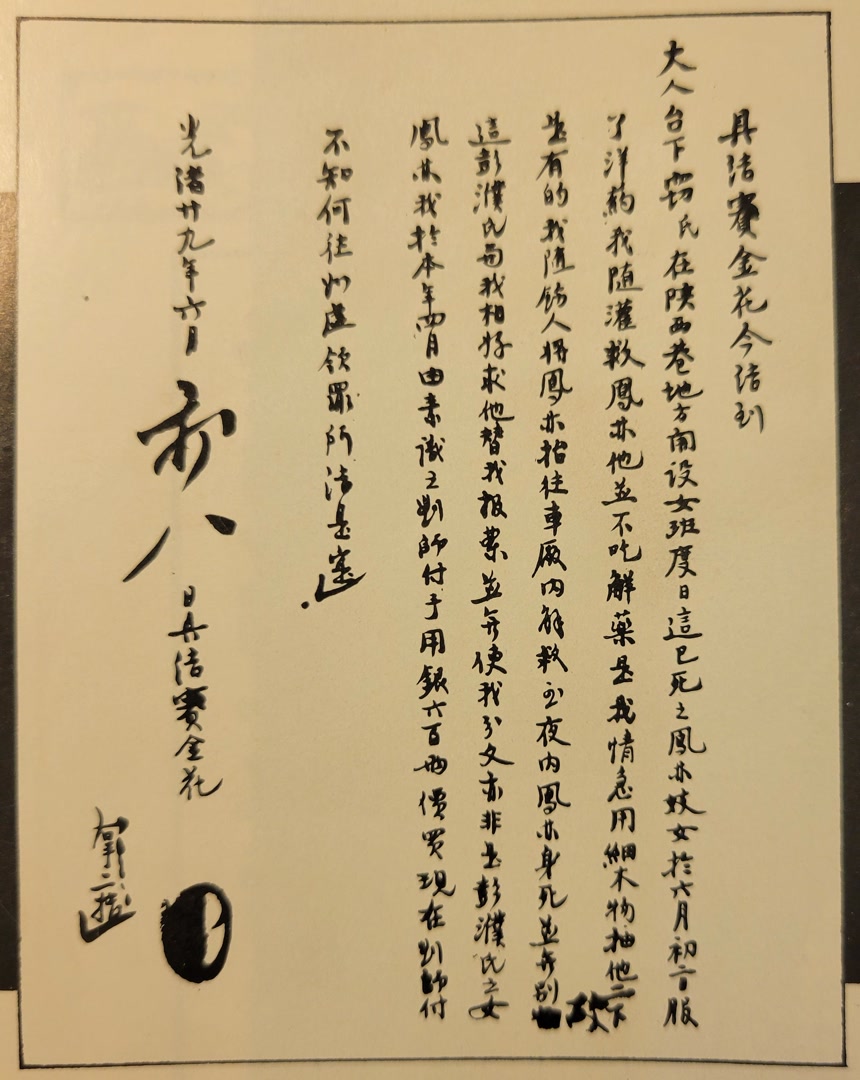 具結賽金花今結到
大人台下竊氏在陝西巷地方開設女班度日這已死之鳳林妓女於六月初二日服
了洋藥我隨灌救鳳林他並不吃解藥是我情急用細木物抽他二下
是有的我隨飭人將鳳林抬往車廠內解救至夜內鳳林身死並無別故
這彭濮氏與我相好求他替我报案並無使我分文亦非是彭濮氏之女
鳳林我於本年四月由素識之劉師付手用銀六百兩價買現在劉師付
不知何往如虛領罪所結是寔
光緒廿九年六月 初八 日具結賽金花